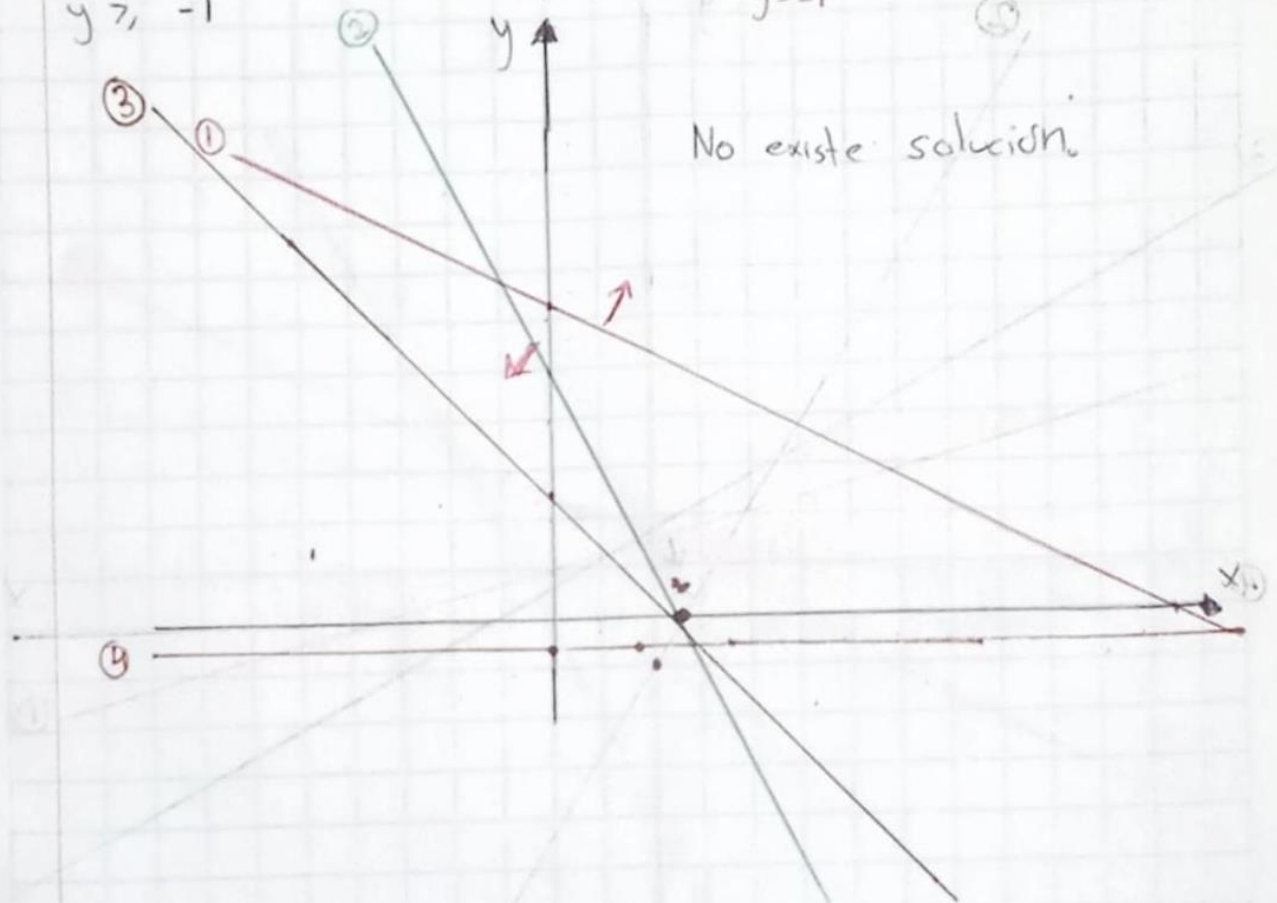 y ≥ -1
② y
③
①
No existe solución.
x
④